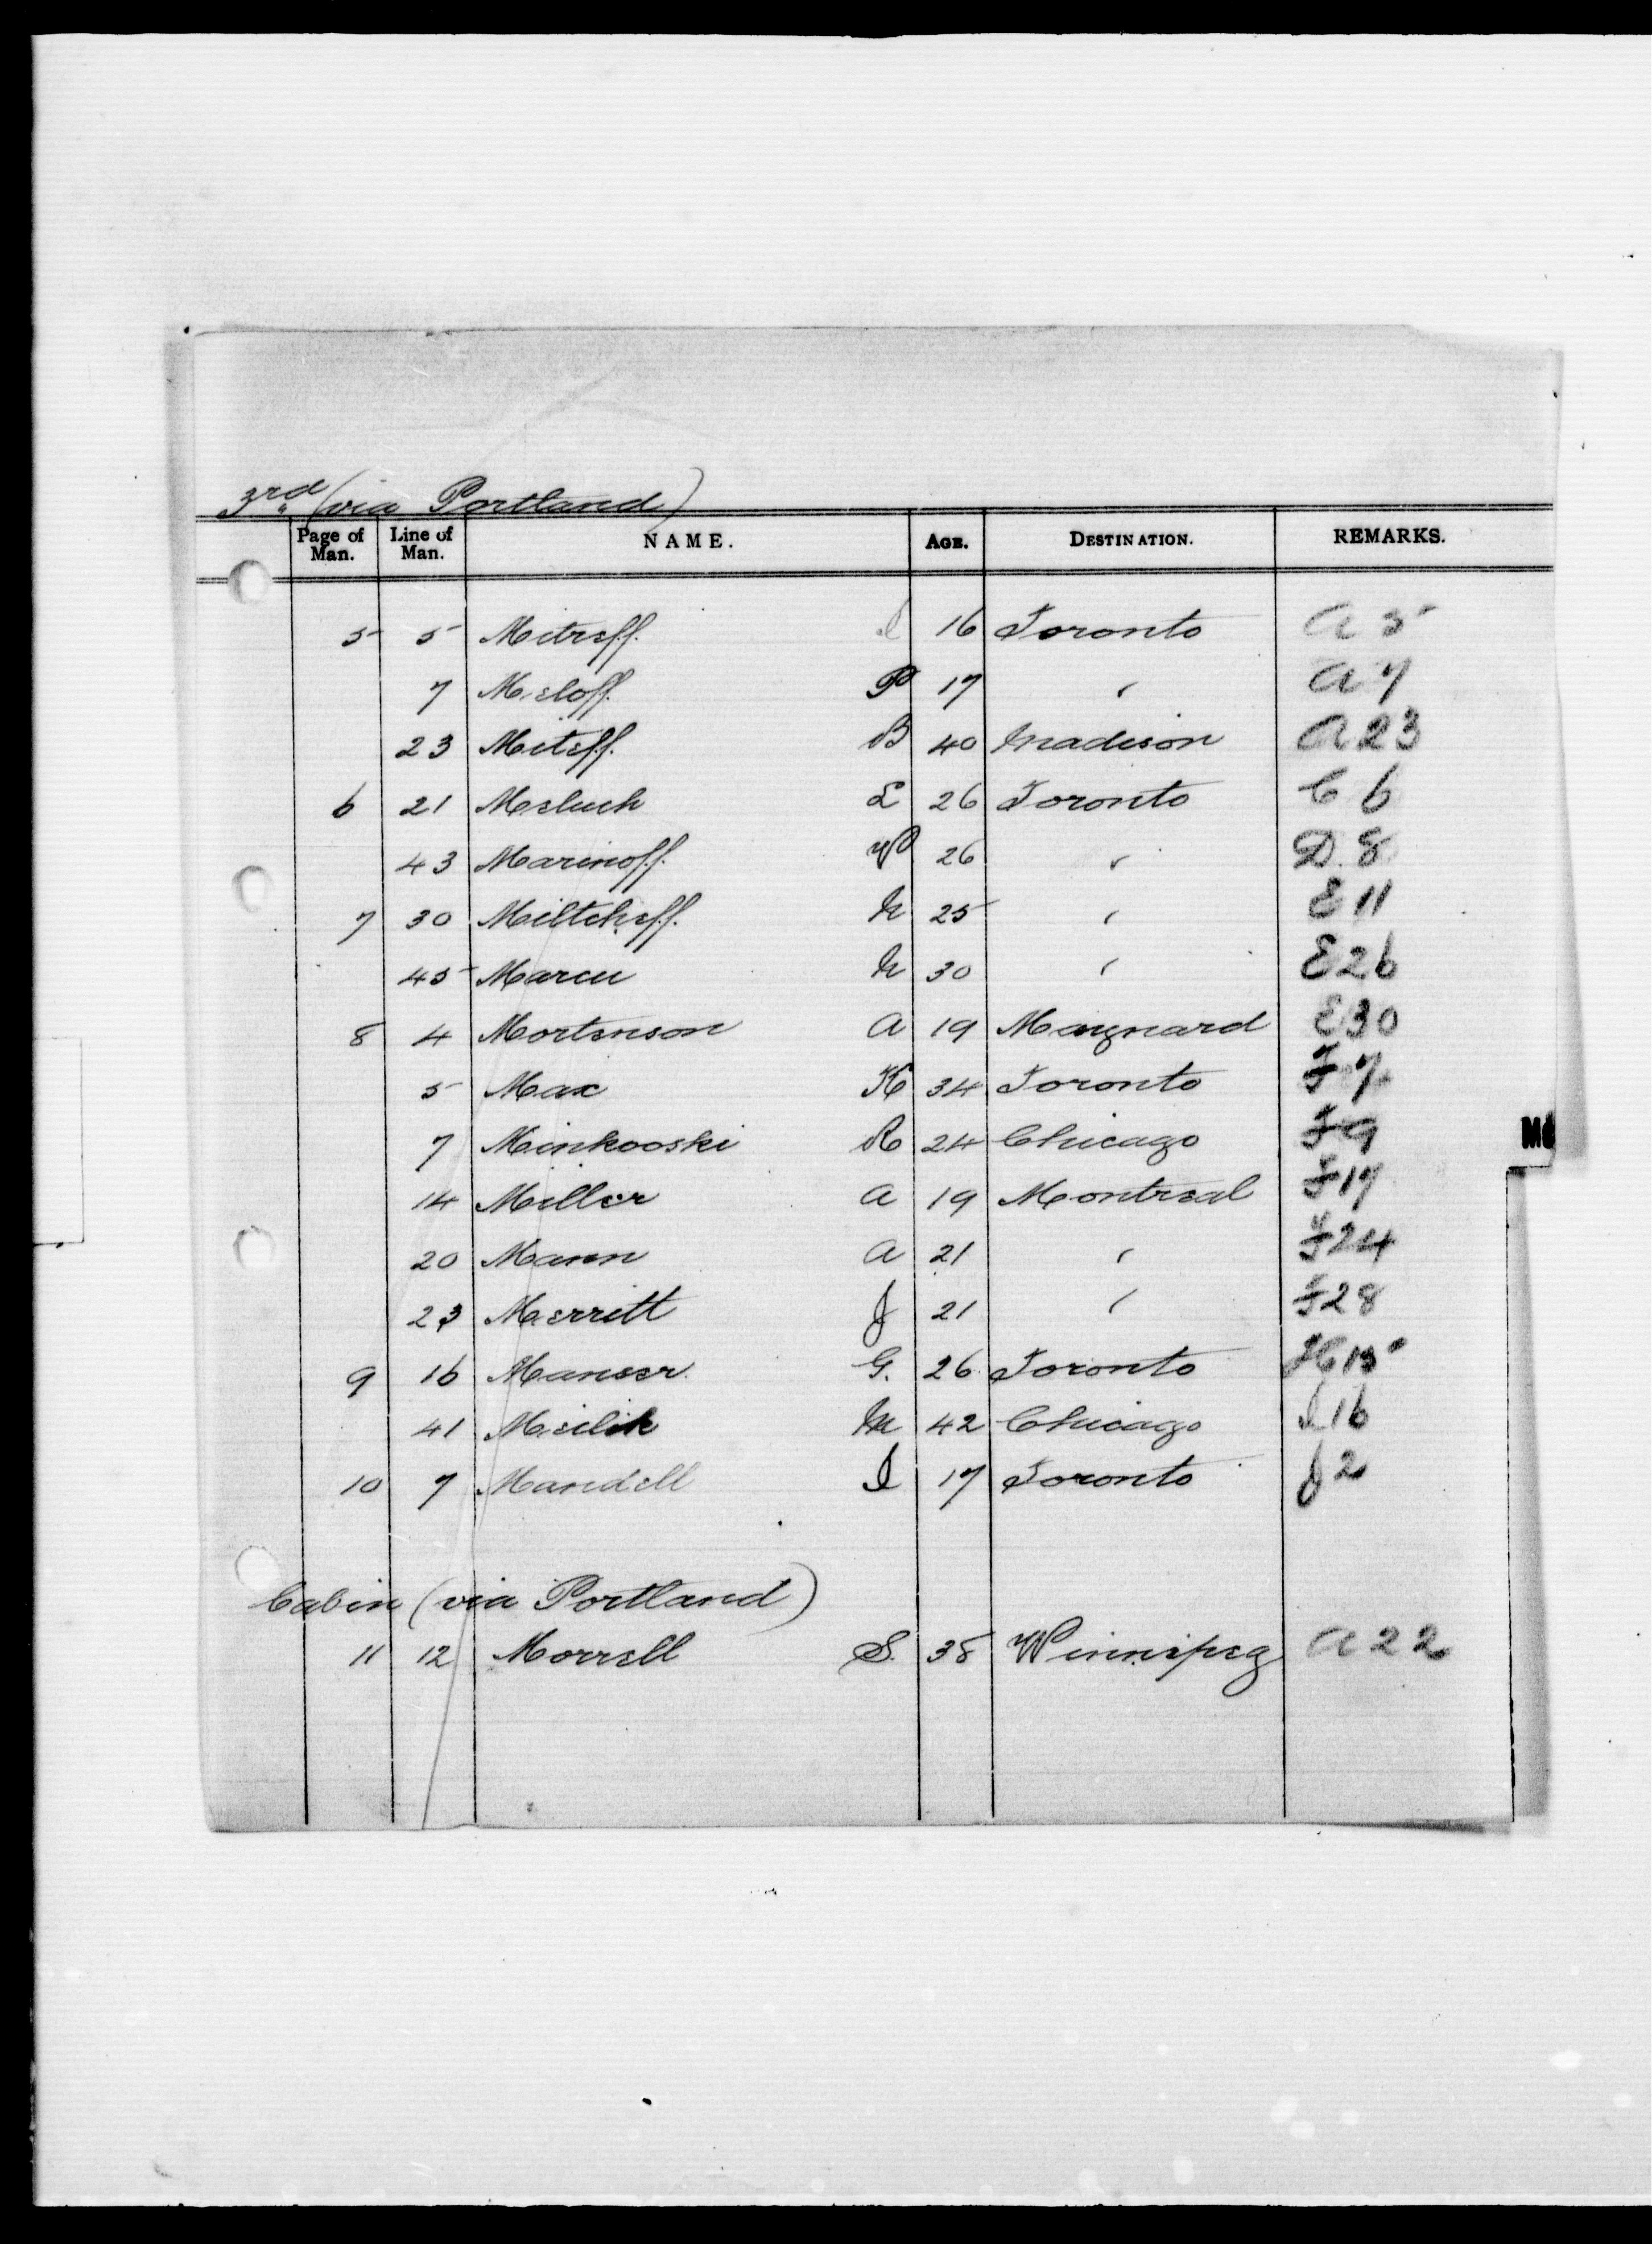 3rd (via Portland)
Page of Man. Line of Man. NAME. AGE. DESTINATION. REMARKS.
5 5 Mitreff. I 16 Toronto A 5
7 Meloff. P 17 " A 7
23 Miteff. B 40 Madison A 23
6 21 Meluch L 26 Toronto C 6
43 Marinoff. W 26 " D. 8
7 30 Miltcheff. N 25 " E 11
45 Marcu N 30 " E 26
8 4 Mortenson A 19 Maynard E 30
5 Max K 34 Toronto F 7
7 Minkooski R 24 Chicago F 9
14 Miller A 19 Montreal F 17
20 Mann A 21 " F 24
23 Merritt J 21 " F 28
9 16 Manser. G. 26 Toronto H 15
41 Meilik M 42 Chicago I 16
10 7 Mandell I 17 Toronto J 2
Cabin (via Portland)
11 12 Morrell S. 38 Winnipeg A 22